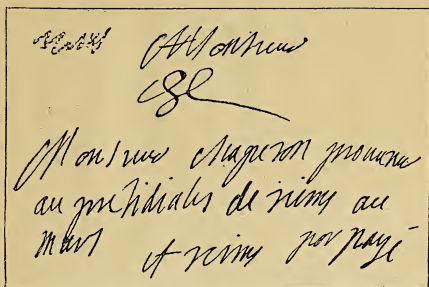 A Monsieur
Monsieur chaperon
au presidiales de reims au
mars A reims por payé